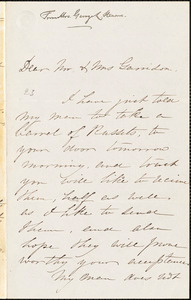 Dear Mr & Mrs Garrison.
I have just told
my man to take a
barrel of Russets, to
your door tomorrow
morning, and trust
you will like to receive
them, half as well
as I like to send
them, and also
hope they will prove
worthy your acceptance
My man does not